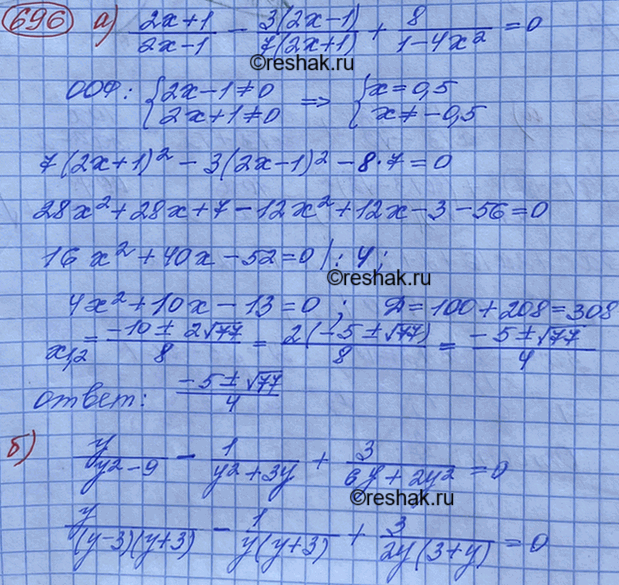 696 а) (2x+1)/(2x-1) - 3(2x-1)/7(2x+1) + 8/(1-4x²) = 0
©reshak.ru
ООФ: {2x-1≠0 ⇒ {x=0,5
{2x+1≠0 {x≠-0,5
7(2x+1)² - 3(2x-1)² - 8·7=0
28x²+28x+7-12x²+12x-3-56=0
16x²+40x-52=0 |:4;
©reshak.ru
4x²+10x-13=0 ; Д=100+208=308
x₁,₂ = (-10±2√77)/8 = 2(-5±√77)/8 = (-5±√77)/4
ответ: (-5±√77)/4
б) y/(y²-9) - 1/(y²+3y) + 3/(6y+2y²) = 0
©reshak.ru
y/(y-3)(y+3) - 1/y(y+3) + 3/2y(3+y) = 0